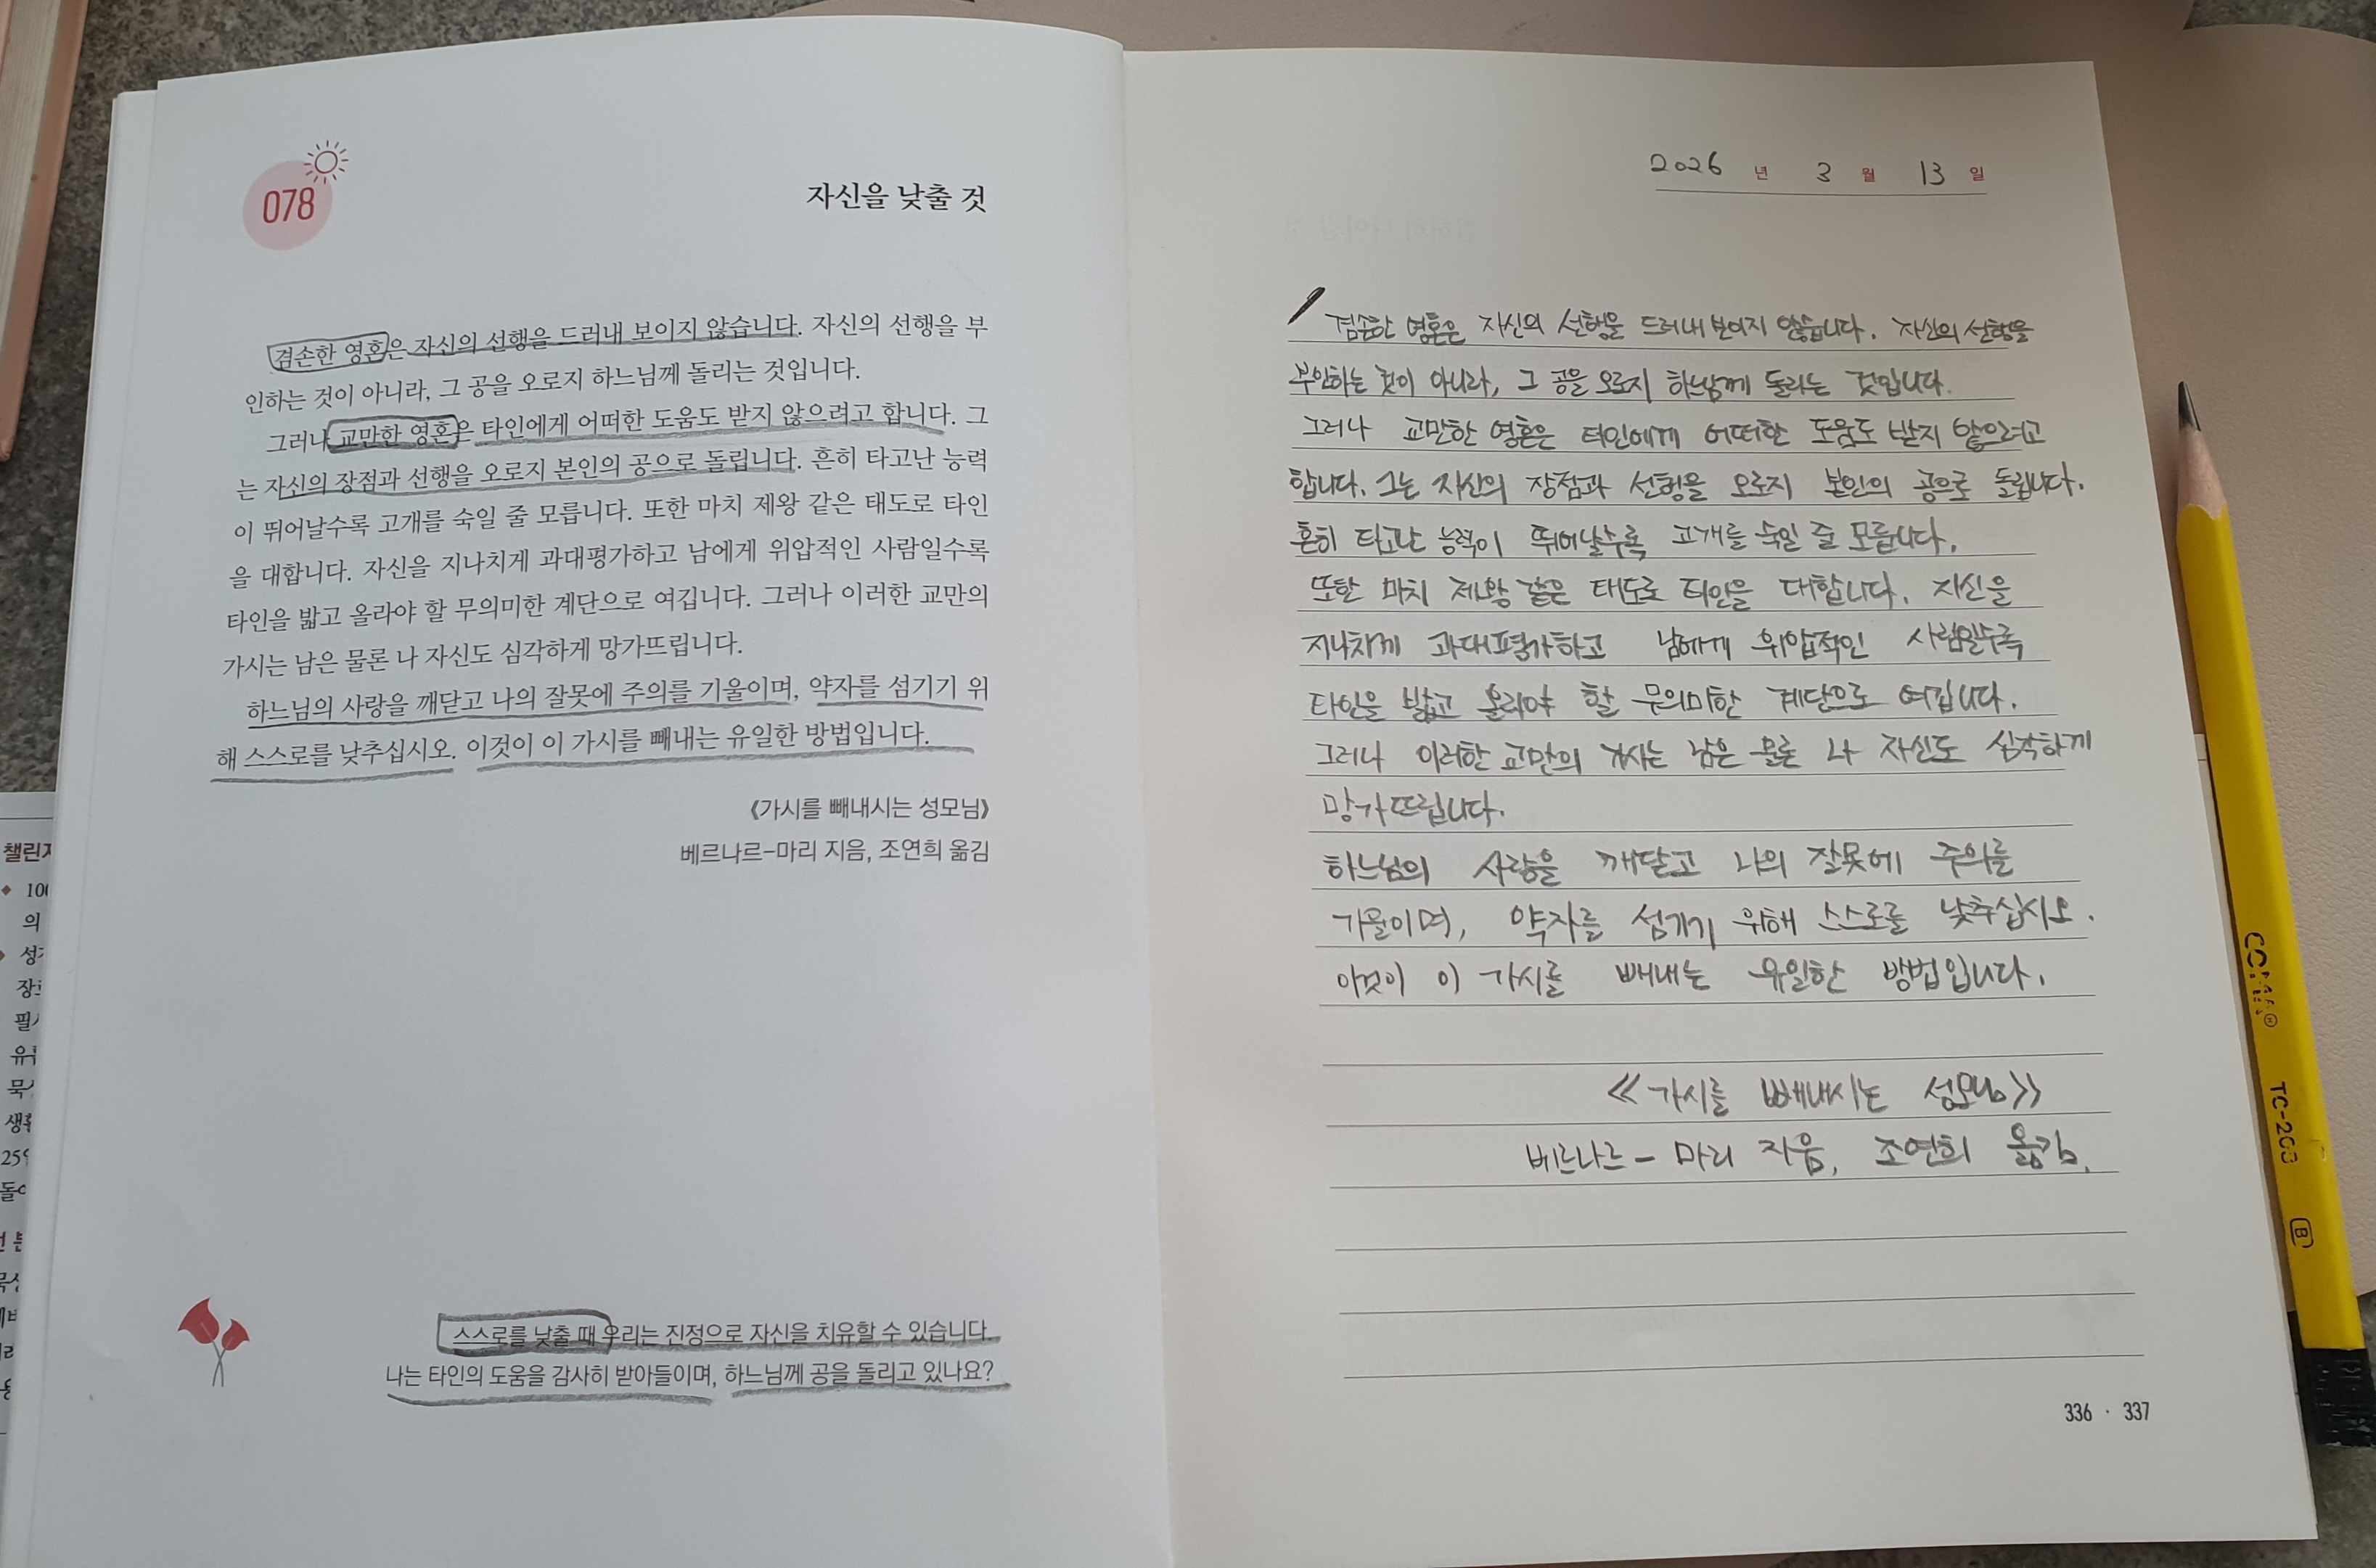 078
자신을 낮출 것
겸손한 영혼은 자신의 선행을 드러내 보이지 않습니다. 자신의 선행을 부
인하는 것이 아니라, 그 공을 오로지 하느님께 돌리는 것입니다.
그러나 교만한 영혼은 타인에게 어떠한 도움도 받지 않으려고 합니다. 그
는 자신의 장점과 선행을 오로지 본인의 공으로 돌립니다. 흔히 타고난 능력
이 뛰어날수록 고개를 숙일 줄 모릅니다. 또한 마치 제왕 같은 태도로 타인
을 대합니다. 자신을 지나치게 과대평가하고 남에게 위압적인 사람일수록
타인을 밟고 올라야 할 무의미한 계단으로 여깁니다. 그러나 이러한 교만의
가시는 남은 물론 나 자신도 심각하게 망가뜨립니다.
하느님의 사랑을 깨닫고 나의 잘못에 주의를 기울이며, 약자를 섬기기 위
해 스스로를 낮추십시오. 이것이 이 가시를 빼내는 유일한 방법입니다.
《가시를 빼내시는 성모님》
베르나르-마리 지음, 조연희 옮김
스스로를 낮출 때 우리는 진정으로 자신을 치유할 수 있습니다.
나는 타인의 도움을 감사히 받아들이며, 하느님께 공을 돌리고 있나요?
2026 년 3 월 13 일
겸손한 영혼은 자신의 선행을 드러내 보이지 않습니다. 자신의 선행을
부인하는 것이 아니라, 그 공을 오로지 하느님께 돌리는 것입니다.
그러나 교만한 영혼은 타인에게 어떠한 도움도 받지 않으려고
합니다. 그는 자신의 장점과 선행을 오로지 본인의 공으로 돌립니다.
흔히 타고난 능력이 뛰어날수록 고개를 숙일 줄 모릅니다.
또한 마치 제왕 같은 태도로 타인을 대합니다. 자신을
지나치게 과대평가하고 남에게 위압적인 사람일수록
타인을 밟고 올라야 할 무의미한 계단으로 여깁니다.
그러나 이러한 교만의 가시는 남은 물론 나 자신도 심각하게
망가뜨립니다.
하느님의 사랑을 깨닫고 나의 잘못에 주의를
기울이며, 약자를 섬기기 위해 스스로를 낮추십시오.
이것이 이 가시를 빼내는 유일한 방법입니다.
≪가시를 빼내시는 성모님≫
베르나르-마리 지음, 조연희 옮김.
336 · 337
COMA
TC-203
B